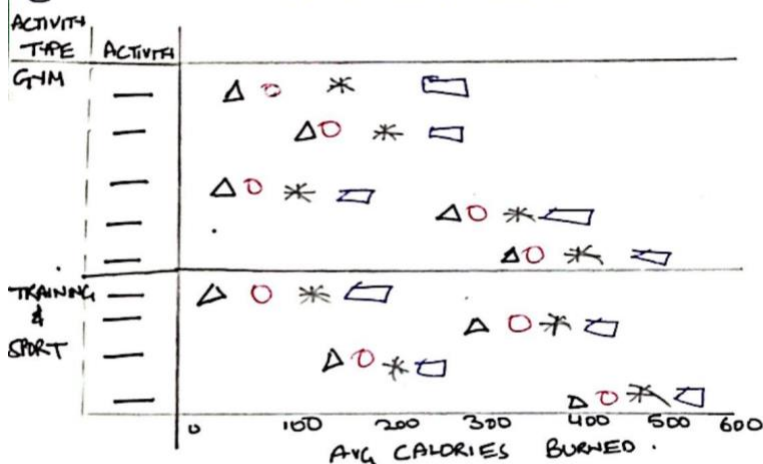 ACTIVITY
TYPE
ACTIVITY
GYM
TRAINING
&
SPORT
0 100 200 300 400 500 600
AVG CALORIES BURNED.